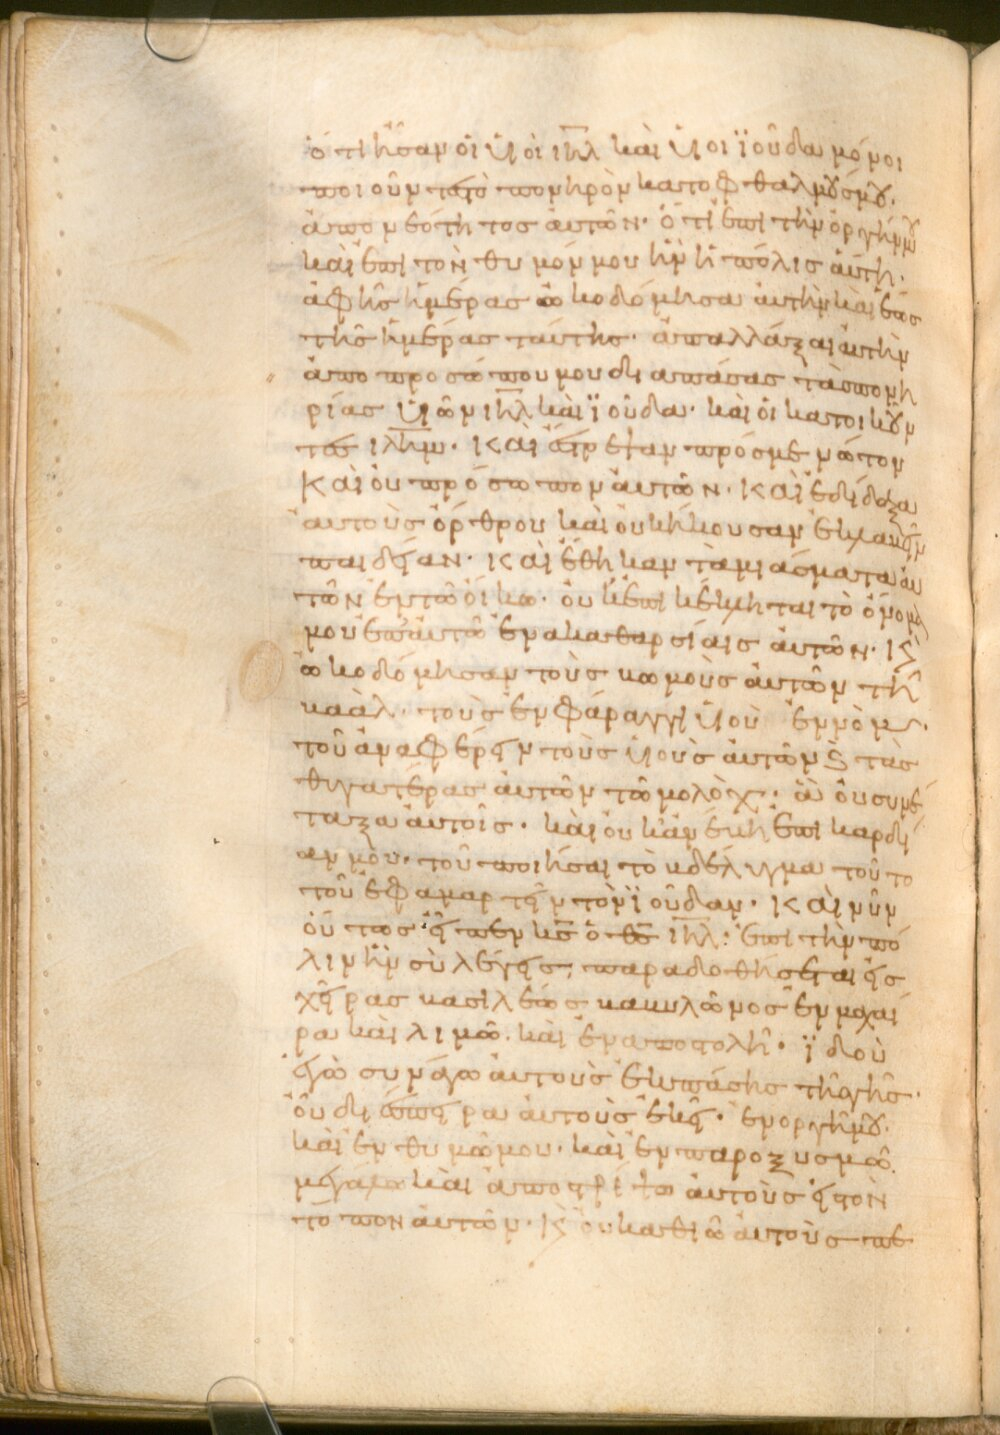 ὅτι ἦσαν οἱ υἱοὶ ιη̅λ καὶ υἱοι ϊούδα μόνοι
ποιοῦντες τὸ πονηρὸν κατοφθαλμούς μου.
ἀπο νεότητος αὐτῶν· ὅτι ἐπι τὴν ὀργήν μου
καὶ ἐπι τὸν θυμόν μου ἦν ἡ πόλις αὕτη.
ἀφῆς ἡμέρας ὠκοδόμησα αὐτὴν καὶ ἕως
τῆς ἡμέρας ταύτης· ἀπαλλάξαι αὐτὴν
ἀπο προσώπου μου διαπάσας τὰς πονη
ρίας υἱῶν ιη̅λ καὶ ϊούδα· καὶ οἱ κατοικοῦν
τες ιλη̅μ· καὶ ἐπέστρεψαν πρόσμε νῶτον
καὶ ου πρόσωπον αὐτῶν· καὶ ἐδίδαξα
αὐτοὺς ὄρθρου καὶ ουκ ἤκουσαν ἐκλαβεῖν
παιδείαν· καὶ ἔθηκαν τὰ μιάσματα αὐ
τῶν ἐν τῶ οίκω· οὗ ἐπικέκληται τὸ ὄνομά
μου ἐπαυτῶ ἐν ακαθαρσίαις αὐτῶν· κ̀
ὠκοδόμησαν τοὺς βωμοὺς αὐτῶν τῆ
βαάλ· τοὺς ἐν φάραγγι υἱοῦ ἐννόμ·
τοῦ ἀναφέρειν τοὺς υἱοὺς αὐτῶν ϗ τὰς
θυγατέρας αὐτῶν τῶ μολὸχ· ἃ οὐ συνέ
ταξα αὐτοῖς· καὶ ουκ ἀνέβη ἐπι καρδί
αν μου· τοῦ ποιῆσαι τὸ βδέλυγμα τοῦτο
τοῦ ἐφαμαρτεῖν τὸν ϊούδαν· καὶ νῦν
οὕτως εἶπεν κ̅ς ὁ θ̅ς ιη̅λ: ἐπι τὴν πό
λιν ἣν σὺ λέγεις, παραδοθήσεται εἰς
χεῖρας βασιλέως βαβυλῶνος ἐν μαχαί
ρα καὶ λιμῶ. καὶ ἐν αποστολῆ· ϊδοὺ
ἐγὼ συνάγω αὐτοὺς ἐκ πάσης τῆς γῆς·
οὗ διέσπειρα αὐτοὺς ἐκεῖ· ἐν οργῆ μου.
καὶ ἐν θυμῶ μου· καὶ ἐν παροξυσμῶ
μεγάλω καὶ ἀποστρέψω αὐτοὺς εἰς τὸν
τόπον αὐτῶν· κ̀ ου καθιῶ αὐτοὺς πε